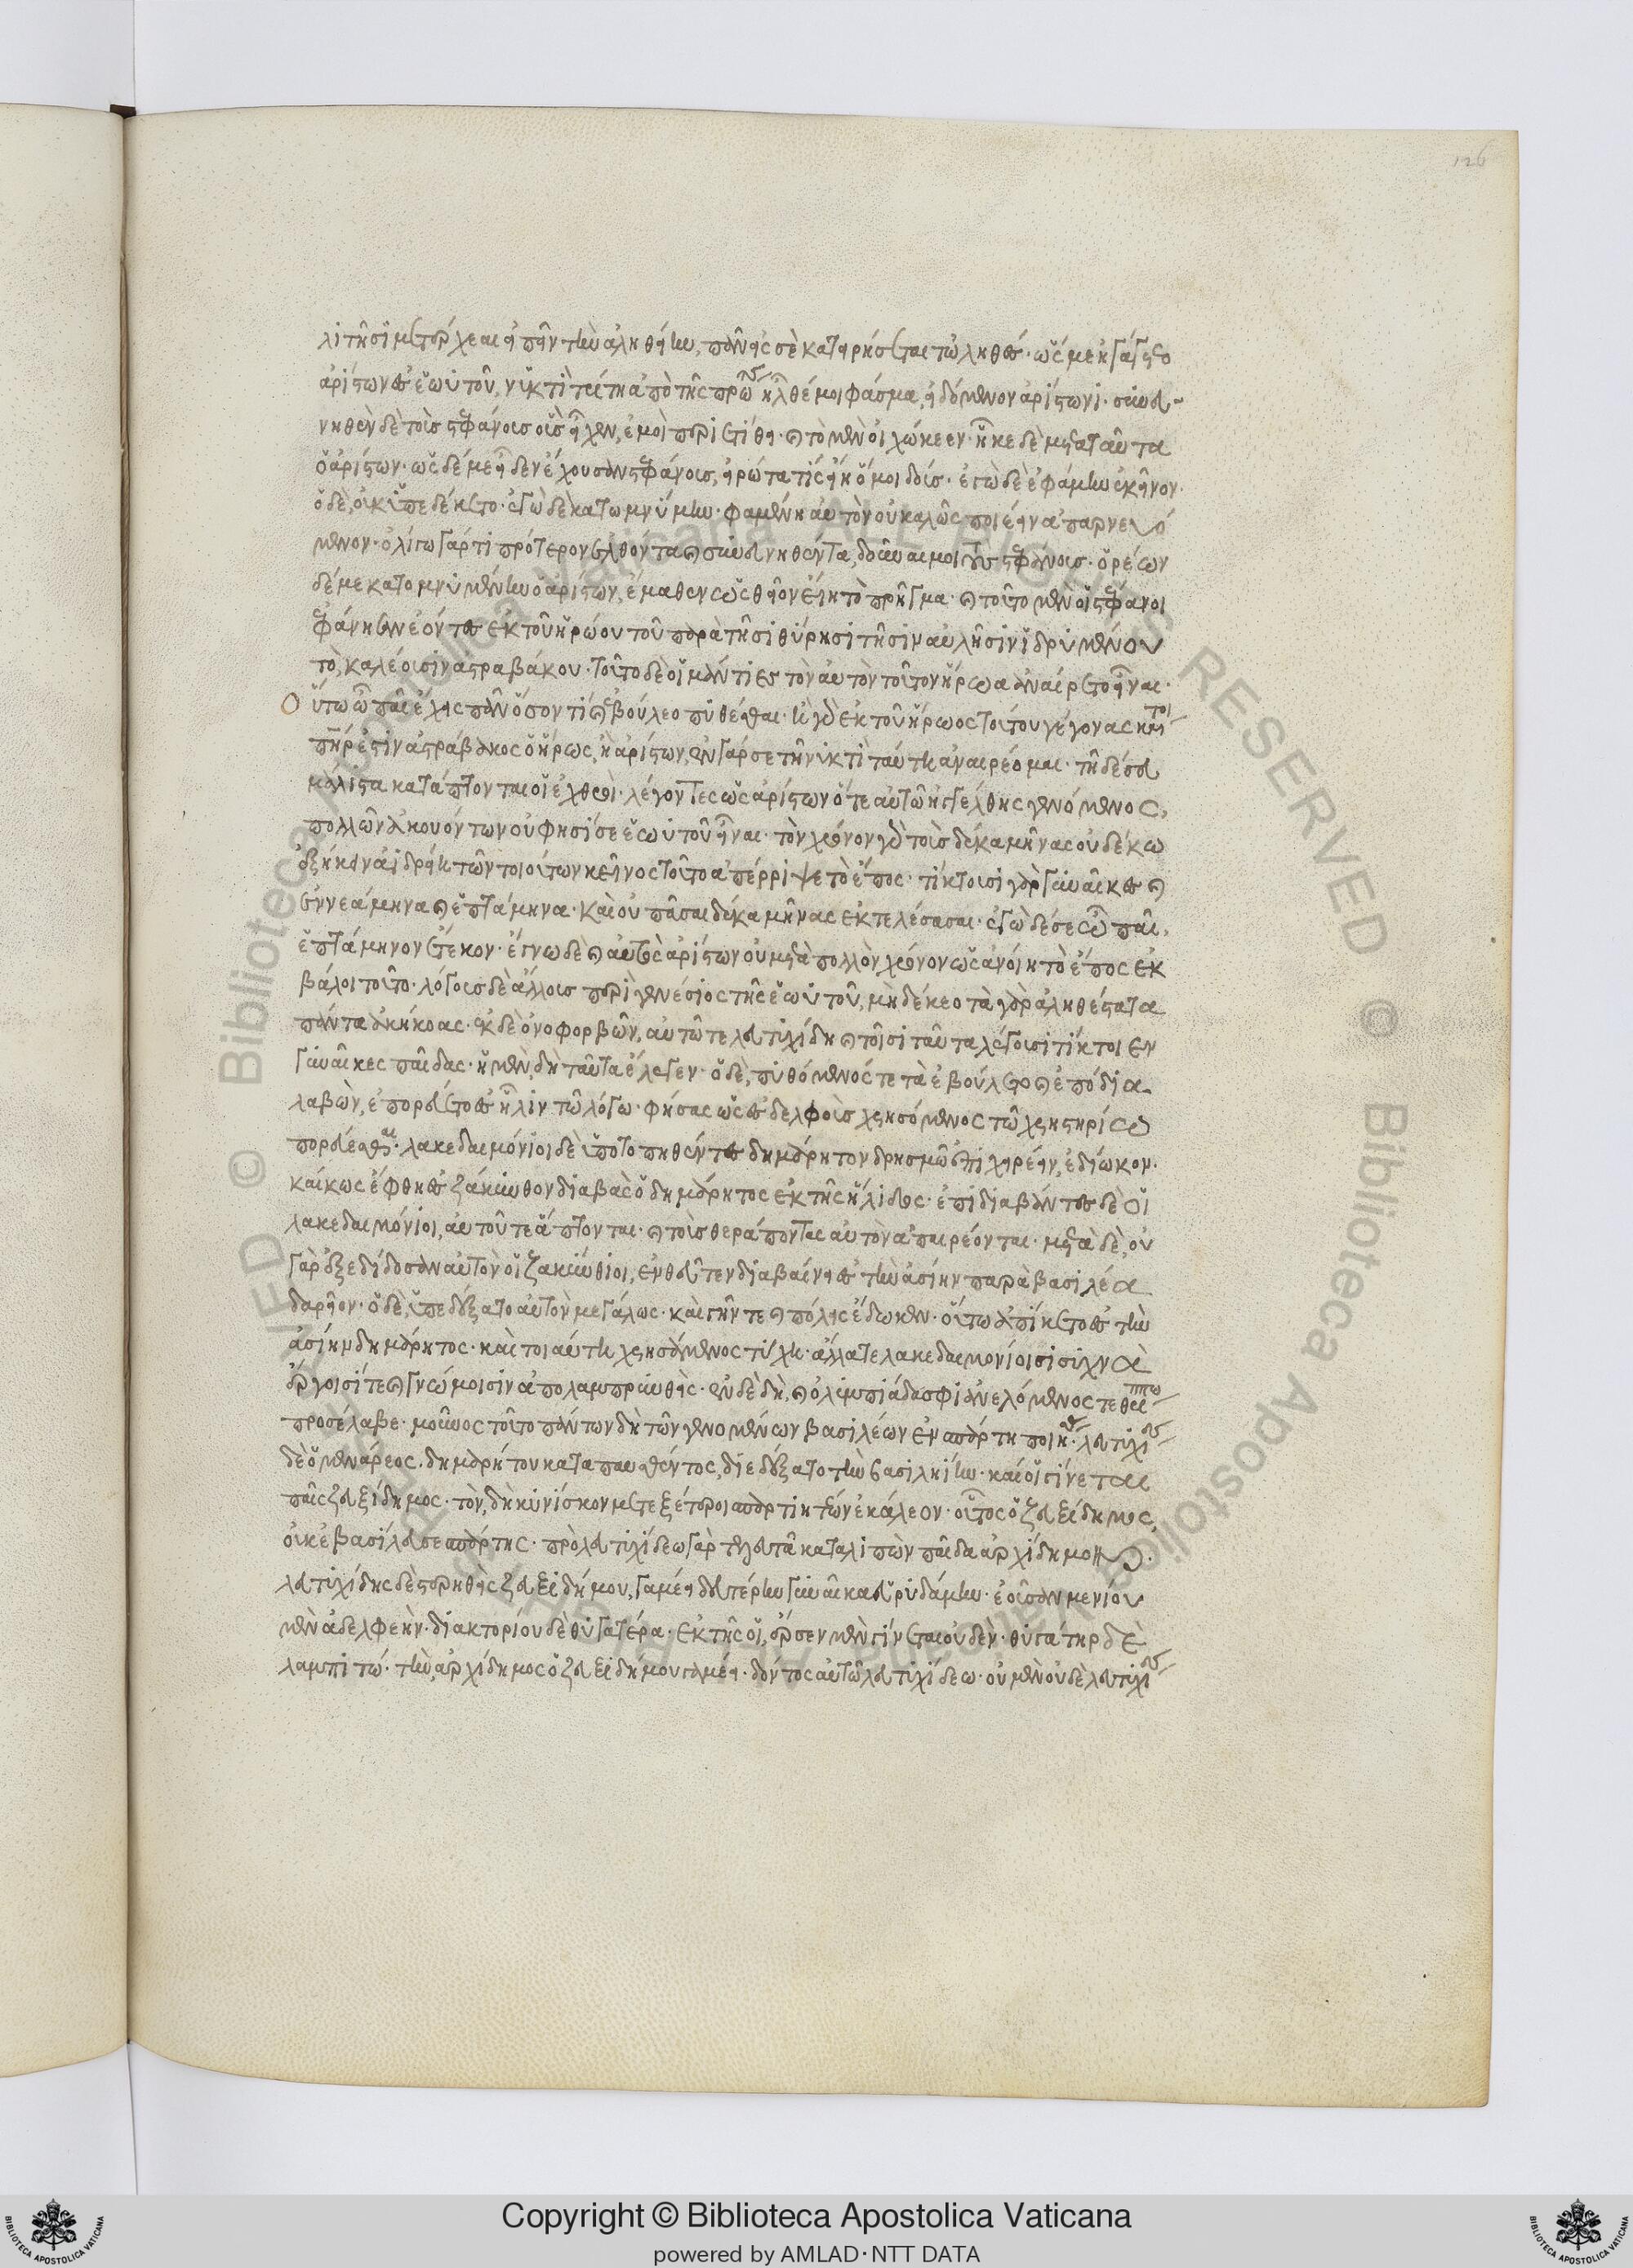 126
λιτῆσι μετέρχεαι εἰπεῖν τὴν ἀληθείην, πᾶν ἐς σὲ κατειρήσεται τὠληθές· ὥς με ἠγάγετο
ἀρίστων ἐς ἑωυτοῦ, νυκτὶ τρίτη ἀπὸ τῆς πρώτης ἦλθέ μοι φάσμα, εἰδόμενον ἀρίστωνι· συνευ
νηθὲν δὲ τοὺς στεφάνους οὓς εἶχεν, ἐμοὶ περιετίθει· καὶ τὸ μὲν οἰχώκεεν· ἧκε δὲ μετὰ ταῦτα
ὁ ἀρίστων· ὡς δέ με εἶδεν ἔχουσαν στεφάνους, εἰρώτα τίς εἴη ὅ μοι δούς· ἐγὼ δὲ ἐφάμην ἐκεῖνον·
ὁ δὲ, οὐκ ὑπεδέκετο· ἐγὼ δὲ κατωμνύμην· φαμένη αὐτὸν οὐ καλῶς ποιέειν ἀπαρνεό
μενον· ὀλίγω γάρ τι πρότερον ἐλθόντα καὶ συνευνηθέντα, δοῦναί μοι τοὺς στεφάνους· ὁρέων
δέ με κατομνυμένην ὁ ἀρίστων, ἔμαθεν ὡς θεῖον εἴη τὸ πρῆγμα· καὶ τοῦτο μὲν οἱ στέφανοι
ἐφάνησαν ἐόντες ἐκ τοῦ ἡρώου τοῦ παρὰ τῆσι θύρησι τῆσιν αὐλῆσιν ἱδρυμένου
τὸ, καλέουσιν ἀστραβάκου· τοῦτο δὲ οἱ μάντιες τὸν αὐτὸν τοῦτον ἥρωα ἀναίρετο εἶναι·
οὕτω ὦ παῖ ἔχεις πᾶν ὅσον τι καὶ βούλεο πυθέσθαι· ἢ γὰρ ἐκ τοῦ ἥρωος τούτου γέγονας καί τοι
πατήρ ἐστιν ἀστράβακος ὁ ἥρως, ἢ ἀρίστων, ἐν γάρ σε τῆ νυκτὶ ταύτη ἀναιρέομαι· τῆ δέ σευ
μάλιστα κατάπτονται οἱ ἐχθροί· λέγοντες ὡς ἀρίστων ὅτε αὐτῶ ἠγγέλθης γενόμενος,
πολλῶν ἀκουόντων οὐ φησί σε ἑωυτοῦ εἶναι· τὸν χρόνον γὰρ τοὺς δέκα μῆνας οὐδέκω
ἐξήκειν ἀιδρείη τῶν τοιούτων κεῖνος τοῦτο ἀπέρριψε τὸ ἔπος· τίκτουσι γὰρ γυναῖκες καὶ
ἐννεάμηνα καὶ ἑπτάμηνα· καὶ οὐ πᾶσαι δέκα μῆνας ἐκτελέσασαι· ἐγὼ δέ σε ὦ παῖ,
ἑπτάμηνον ἔτεκον· ἔγνω δὲ καὶ αὐτὸς ἀρίστων οὐ μετὰ πολλὸν χρόνον ὡς ἀνοίη τὸ ἔπος ἐκ
βάλοι τοῦτο· λόγους δὲ ἄλλους περὶ γενέσιος τῆς ἑωυτοῦ, μὴ δέκεο τὰ γὰρ ἀληθέστατα
πάντα ἀκήκοας· ἐκ δὲ ὀνοφορβῶν, αὐτῶ τε λευτιχίδη καὶ τοῖσι ταῦτα λέγουσι τίκτοιεν
γυναῖκες παῖδας· ἡ μὲν, δὴ ταῦτα ἔλεγεν· ὁ δὲ, πυθόμενός τε τὰ ἐβούλετο καὶ ἐπόδια
λαβὼν, ἐπορεύετο ἐς ἦλιν τῶ λόγω· φήσας ὡς ἐς δελφοὺς χρησόμενος τῶ χρηστηρίω
πορεύεσθαι· λακεδαιμόνιοι δὲ ὑποτοπηθέντες δημάρητον δρησμῶ ἐπιχειρέειν, ἐδίωκον·
καί κως ἔφθη ἐς ζάκυνθον διαβὰς ὁ δημάρητος ἐκ τῆς ἤλιδος· ἐπιδιαβάντες δὲ οἱ
λακεδαιμόνιοι, αὐτοῦ τε ἅπτονται· καὶ τοὺς θεράποντας αὐτὸν ἀπαιρέονται· μετὰ δὲ, οὐ
γὰρ ἐξεδίδοσαν αὐτὸν οἱ ζακύνθιοι, ἐνθεῦτεν διαβαίνει ἐς τὴν ἀσίην παρὰ βασιλέα
δαρεῖον· ὁ δὲ, ὑπεδέξατο αὐτὸν μεγάλως· καὶ γῆν τε καὶ πόλις ἔδωκεν· οὕτω ἀπίκετο ἐς τὴν
ἀσίην δημάρητος· καὶ τοιαύτη χρησάμενος τύχη· ἄλλα τε λακεδαιμονίοισι συχνὰ
ἔργοισί τε καὶ γνώμοισιν ἀπολαμπρυνθείς· ἐν δὲ δὴ, καὶ ὀλυμπιάδα σφι ἀνελόμενος τεθρίππω
προσέλαβε· μοῦνος τοῦτο πάντων δὴ τῶν γενομένων βασιλέων ἐν σπάρτη ποιήσας· λευτιχίδης
δὲ ὁ μενάρεος· δημαρήτου καταπαυσθέντος, διεδέξατο τὴν βασιληίην· καί οἱ γίνεται
παῖς ζευξίδημος· τὸν, δὴ κυνίσκον μετεξέτεροι σπαρτιητέων ἐκάλεον· οὗτος ὁ ζευξίδημος,
οὐκ ἐβασίλευσε σπάρτης· πρὸ λευτιχίδεω γὰρ τελευτᾶ καταλιπὼν παῖδα ἀρχίδημον·
λευτιχίδης δὲ στερηθεὶς ζευξιδήμου, γαμέει δευτέρην γυναῖκα εὐρυδάμην· ἐοῦσαν μενίου
μὲν ἀδελφεὴν· διακτορίου δὲ θυγατέρα· ἐκ τῆς οἱ, ἔρσεν μὲν γίνεται οὐδὲν· θυγάτηρ δὲ
λαμπιτώ· τὴν, ἀρχίδημος ὁ ζευξιδήμου γαμέει· δόντος αὐτῶ λευτιχίδεω· οὐ μὲν οὐδὲ λευτιχίδης
Copyright © Biblioteca Apostolica Vaticana
powered by AMLAD·NTT DATA